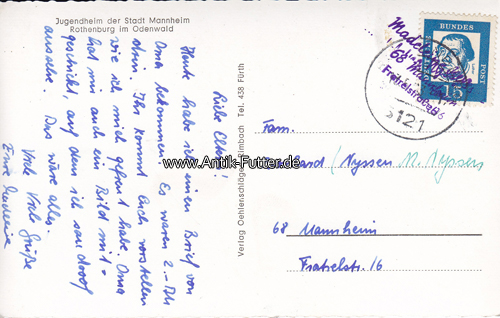 Jugendheim der Stadt Mannheim
Rothenburg im Odenwald
Liebe Eltern!
Heute habe ich einen Brief von
Oma bekommen. Es waren 2.- DM
drin. Ihr könnt Euch vorstellen
wie ich mich gefreut habe. Oma
hat mir auch ein Bild mit-
geschickt, auf dem ich so doof
aussehe. Das wäre alles.
Viele Viele Grüße
Eure
Verlag Oehlenschläger, Tel. 438 Fürth
DEUTSCHE BUNDESPOST
15
68 Mannheim
6121
Fam.
Nyssen
68 Mannheim
Fratrelstr. 16
www.Antik-Futter.de